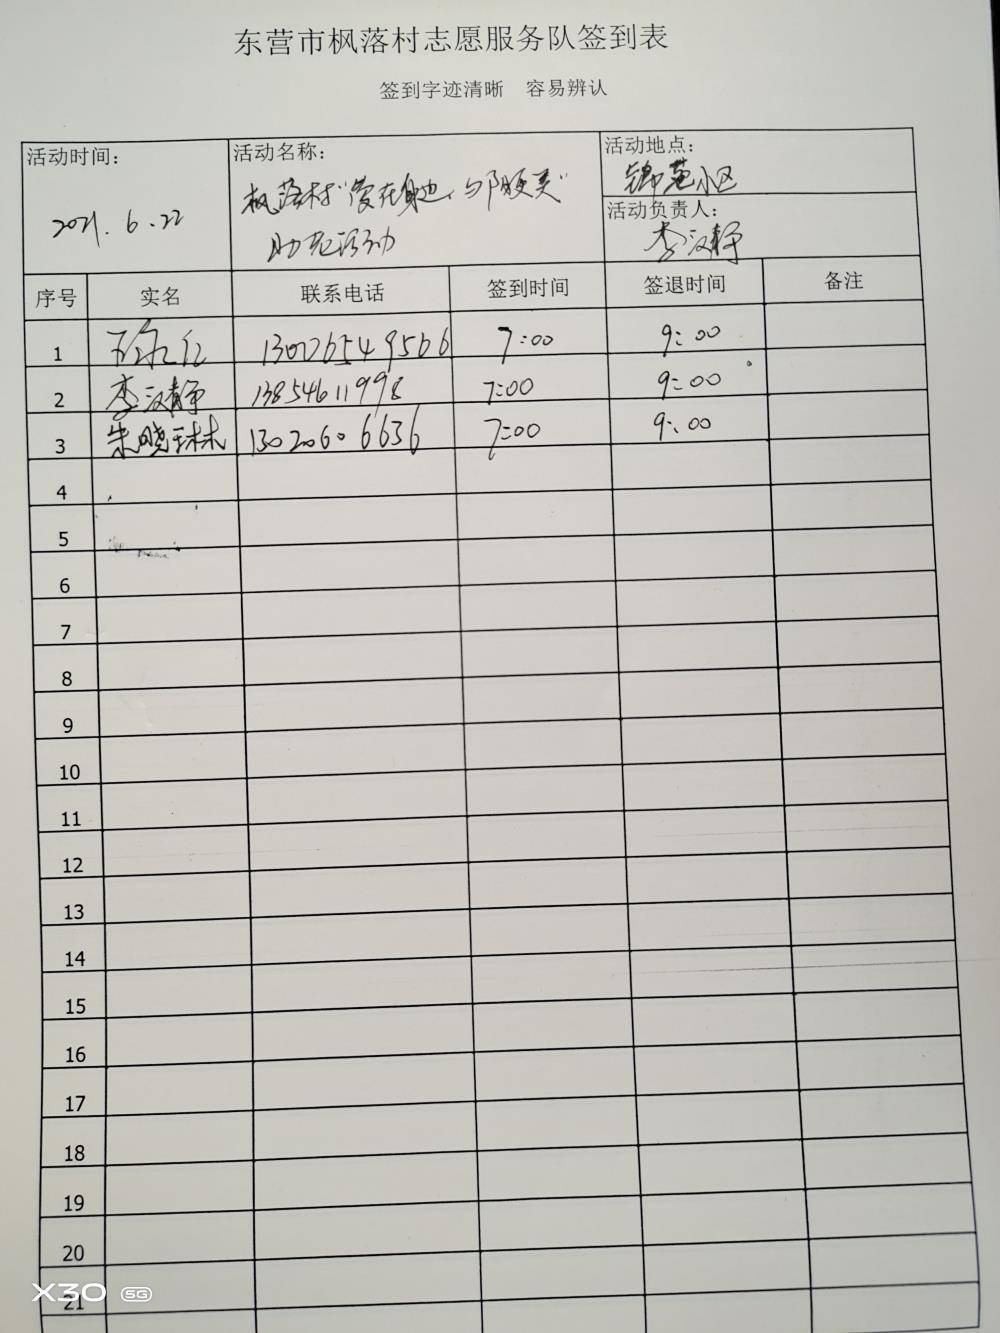 东营市枫落村志愿服务队签到表
签到字迹清晰 容易辨认
活动时间: 活动名称: 活动地点:
2021.6.22 枫落村"爱在身边, 与 锦苑小区
助老活动 活动负责人:
李汉静
序号 实名 联系电话 签到时间 签退时间 备注
1 13002654 9566 7:00 9:00
2 李汉静 13854611998 7:00 9:00
3 朱晓琳 1302060 6636 7:00 9:00
4
5
6
7
8
9
10
11
12
13
14
15
16
17
18
19
20
21
X30 5G